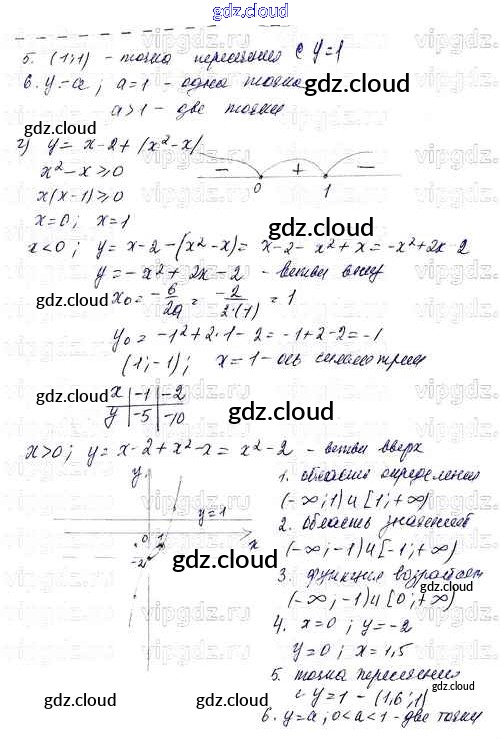 gdz.cloud
5. (1;1) - точка пересечения с y=1
6. y=a; a=1 - одна точка
a>1 - две точки
gdz.cloud
г) y = x-2+|x²-x|
x²-x≥0
x(x-1)≥0
- + -
0 1
x=0; x=1
gdz.cloud
x<0; y= x-2-(x²-x)= x-2-x²+x=-x²+2x-2
y=-x²+2x-2 - ветви вниз
gdz.cloud
x₀=-б/2a = -2/2·(1) = 1
y₀=-1²+2·1-2=-1+2-2=-1
(1;-1); x=1-ось симметрии
x | -1 | -2
y | -5 | -10
gdz.cloud
gdz.cloud
x>0; y= x-2+x²-x= x²-2 - ветви вверх
y
y=1
0 1
x
-2
gdz.cloud
1. область определения
(-∞;1)∪[1;+∞)
gdz.cloud
2. область значений
(-∞;-1)∪[-1;+∞)
gdz.cloud
3. функция возрастает
(-∞;-1)∪[0;+∞)
gdz.cloud
4. x=0; y=-2
y=0; x=1,5
5. точка пересечения
с y=1 - (1,6;1)
gdz.cloud
6. y=a; 0<a<1-две точки